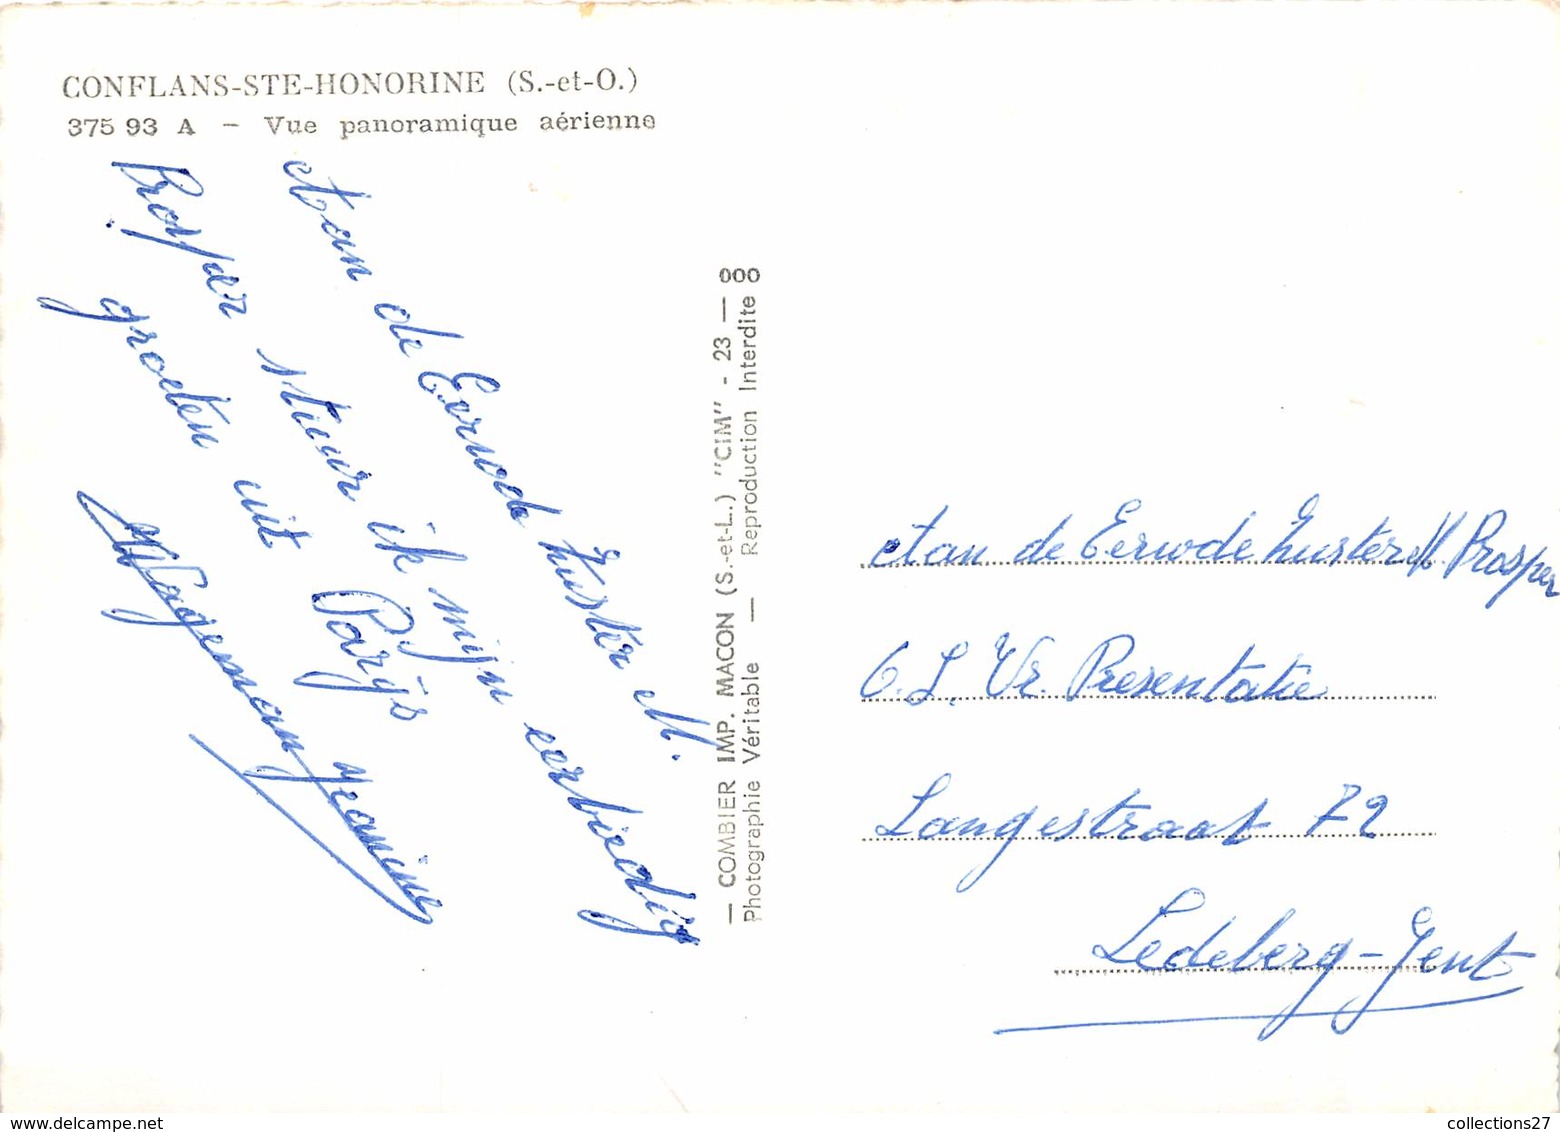 CONFLANS-STE-HONORINE (S.-et-O.)
375 93 A – Vue panoramique aérienne
Aan de Eerwde Zuster M.
Prosper stuur ik mijn eerbiedig
groeten uit Parijs
Wageman Jeanine
— COMBIER IMP. MACON (S.-et-L.) "CIM" - 23 — 000
Photographie Véritable — Reproduction Interdite
Aan de Eerwde Zuster M Prosper
O.L. Vr. Presentatie
Langestraat 72
Ledeberg-Gent
collections27